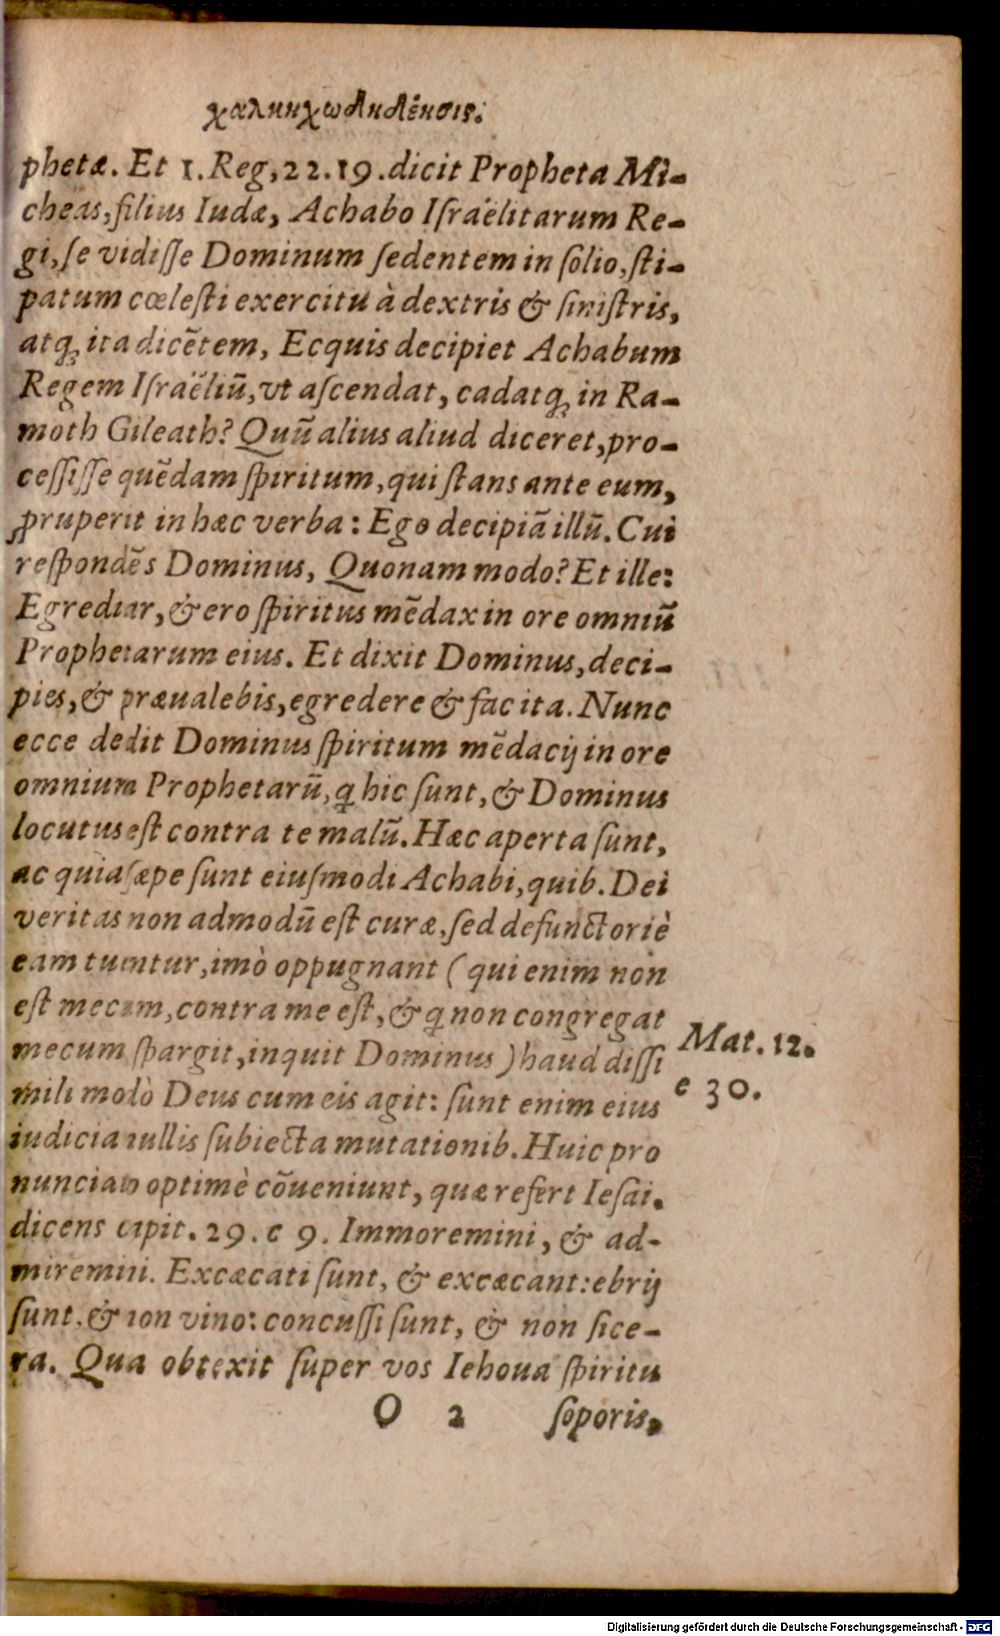 χαλκηχωδηδένσις.
phetæ. Et 1. Reg, 22. 19. dicit Propheta Mi-
cheas, filius Iudæ, Achabo Iſraëlitarum Re-
gi, ſe vidiſſe Dominum ſedentem in ſolio, ſti-
patum cœleſti exercitu à dextris & ſiniſtris,
atq; ita dicẽtem, Ecquis decipiet Achabum
Regem Iſraëliũ, vt aſcendat, cadatq; in Ra-
moth Gileath? Quũ alius aliud diceret, pro-
ceſſiſſe quẽdam ſpiritum, qui ſtans ante eum,
ꝓruperit in hæc verba: Ego decipiã illũ. Cui
reſpondẽs Dominus, Quonam modo? Et ille:
Egrediar, & ero ſpiritus mẽdax in ore omniũ
Prophetarum eius. Et dixit Dominus, deci-
pies, & præualebis, egredere & fac ita. Nunc
ecce dedit Dominus ſpiritum mẽdacij in ore
omnium Prophetarũ, q hic ſunt, & Dominus
locutus eſt contra te malũ. Hæc aperta ſunt,
ac quia ſæpe ſunt eiuſmodi Achabi, quib. Dei
veritas non admodũ eſt curæ, ſed defunctoriè
eam tuentur, imò oppugnant (qui enim non
eſt mecum, contra me eſt, & q non congregat
mecum ſpargit, inquit Dominus) haud diſſi
mili modò Deus cum eis agit: ſunt enim eius
iudicia nullis ſubiecta mutationib. Huic pro
nunciato optimè cõueniunt, quæ refert Ieſai.
dicens capit. 29. c 9. Immoremini, & ad-
miremini. Excæcati ſunt, & excæcant: ebrij
ſunt, & non vino: concuſſi ſunt, & non ſice-
ra. Qua obtexit ſuper vos Iehoua ſpiritu
O 2 ſoporis,
Mat. 12.
e 30.
Digitalisierung gefördert durch die Deutsche Forschungsgemeinschaft - DFG